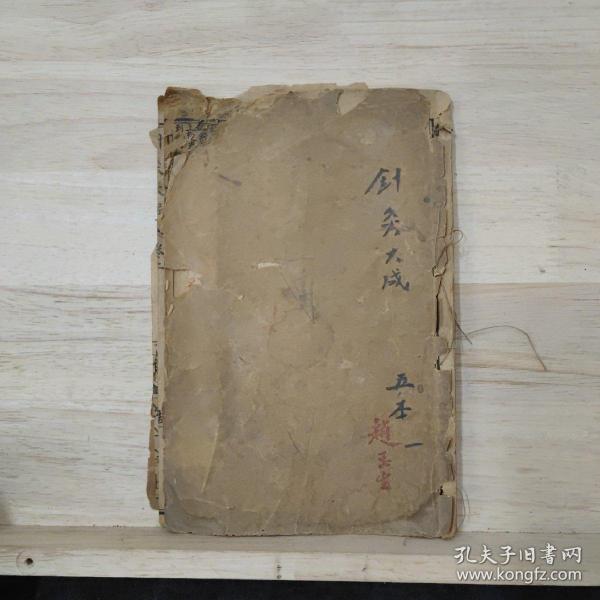 针灸大成
五本
一
趙玉宝
孔夫子旧书网
www.kongfz.com